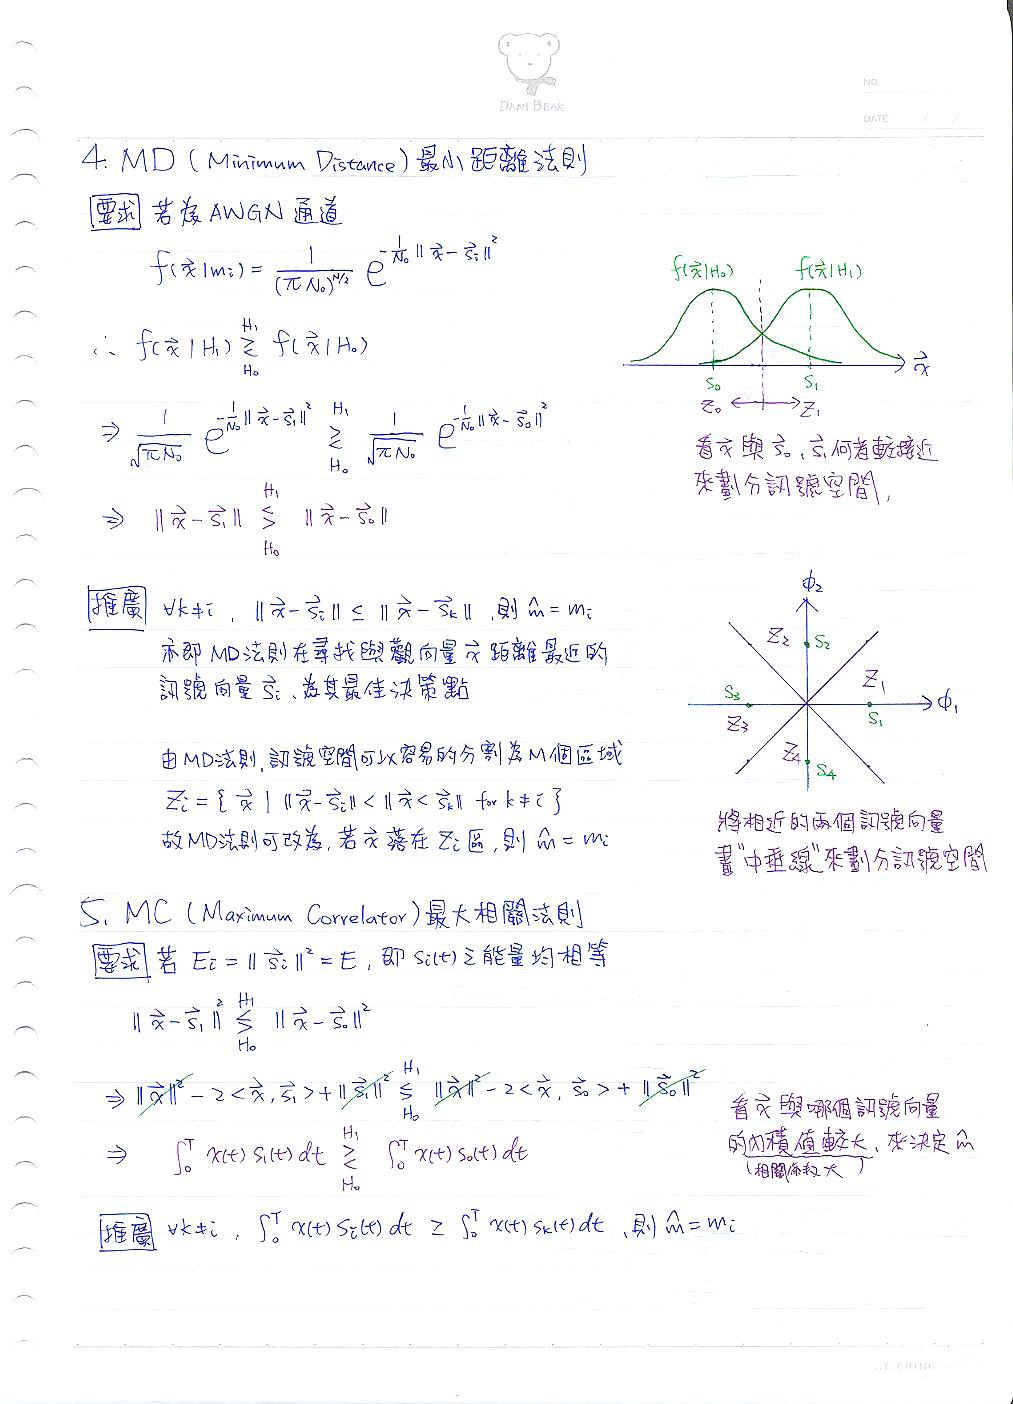 DANI BEAR
NO.
DATE / /
4. MD (Minimum Distance) 最小距離法則
要求 若為 AWGN 通道
f(x⃗|mᵢ) = 1/(πN₀)^(N/2) e^(-1/N₀ ||x⃗-s⃗ᵢ||²)
∴ f(x⃗|H₁) ≷ f(x⃗|H₀)
H₁
H₀
⇒ 1/√(πN₀) e^(-1/N₀ ||x⃗-s⃗₁||²) ≷ 1/√(πN₀) e^(-1/N₀ ||x⃗-s⃗₀||²)
H₁
H₀
⇒ ||x⃗-s⃗₁|| ≶ ||x⃗-s⃗₀||
H₁
H₀
f(x⃗|H₀) f(x⃗|H₁)
x⃗
S₀ S₁
Z₀ Z₁
看x⃗與s⃗₀、s⃗₁何者較接近
來劃分訊號空間,
推廣 ∀k≠i, ||x⃗-s⃗ᵢ|| ≤ ||x⃗-s⃗ₖ||, 則 m̂ = mᵢ
亦即 MD法則在尋找與觀向量x⃗距離最近的
訊號向量s⃗ᵢ、為其最佳決策點
由MD法則, 訊號空間可以容易的分割為M個區域
Zᵢ = { x⃗ | ||x⃗-s⃗ᵢ|| < ||x⃗ < s⃗ₖ|| for k≠i }
故MD法則可改為, 若x⃗落在Zᵢ區, 則 m̂ = mᵢ
ϕ₂
Z₂ S₂
Z₁
S₃
ϕ₁
Z₃ S₁
Z₄ S₄
將相近的兩個訊號向量
畫"中垂線"來劃分訊號空間
5. MC (Maximum Correlator) 最大相關法則
要求 若 Eᵢ = ||s⃗ᵢ||² = E, 即 Sᵢ(t)之能量均相等
||x⃗-s⃗₁||² ≶ ||x⃗-s⃗₀||²
H₁
H₀
⇒ ||x⃗||² - 2<x⃗, s⃗₁> + ||s⃗₁||² ≶ ||x⃗||² - 2<x⃗, s⃗₀> + ||s⃗₀||²
H₁
H₀
⇒ ∫₀ᵀ x(t) s₁(t) dt ≷ ∫₀ᵀ x(t) s₀(t) dt
H₁
H₀
看x⃗與哪個訊號向量
的內積值較大, 來決定 m̂
(相關係數大)
推廣 ∀k≠i, ∫₀ᵀ x(t) sᵢ(t) dt ≥ ∫₀ᵀ x(t) sₖ(t) dt, 則 m̂ = mᵢ